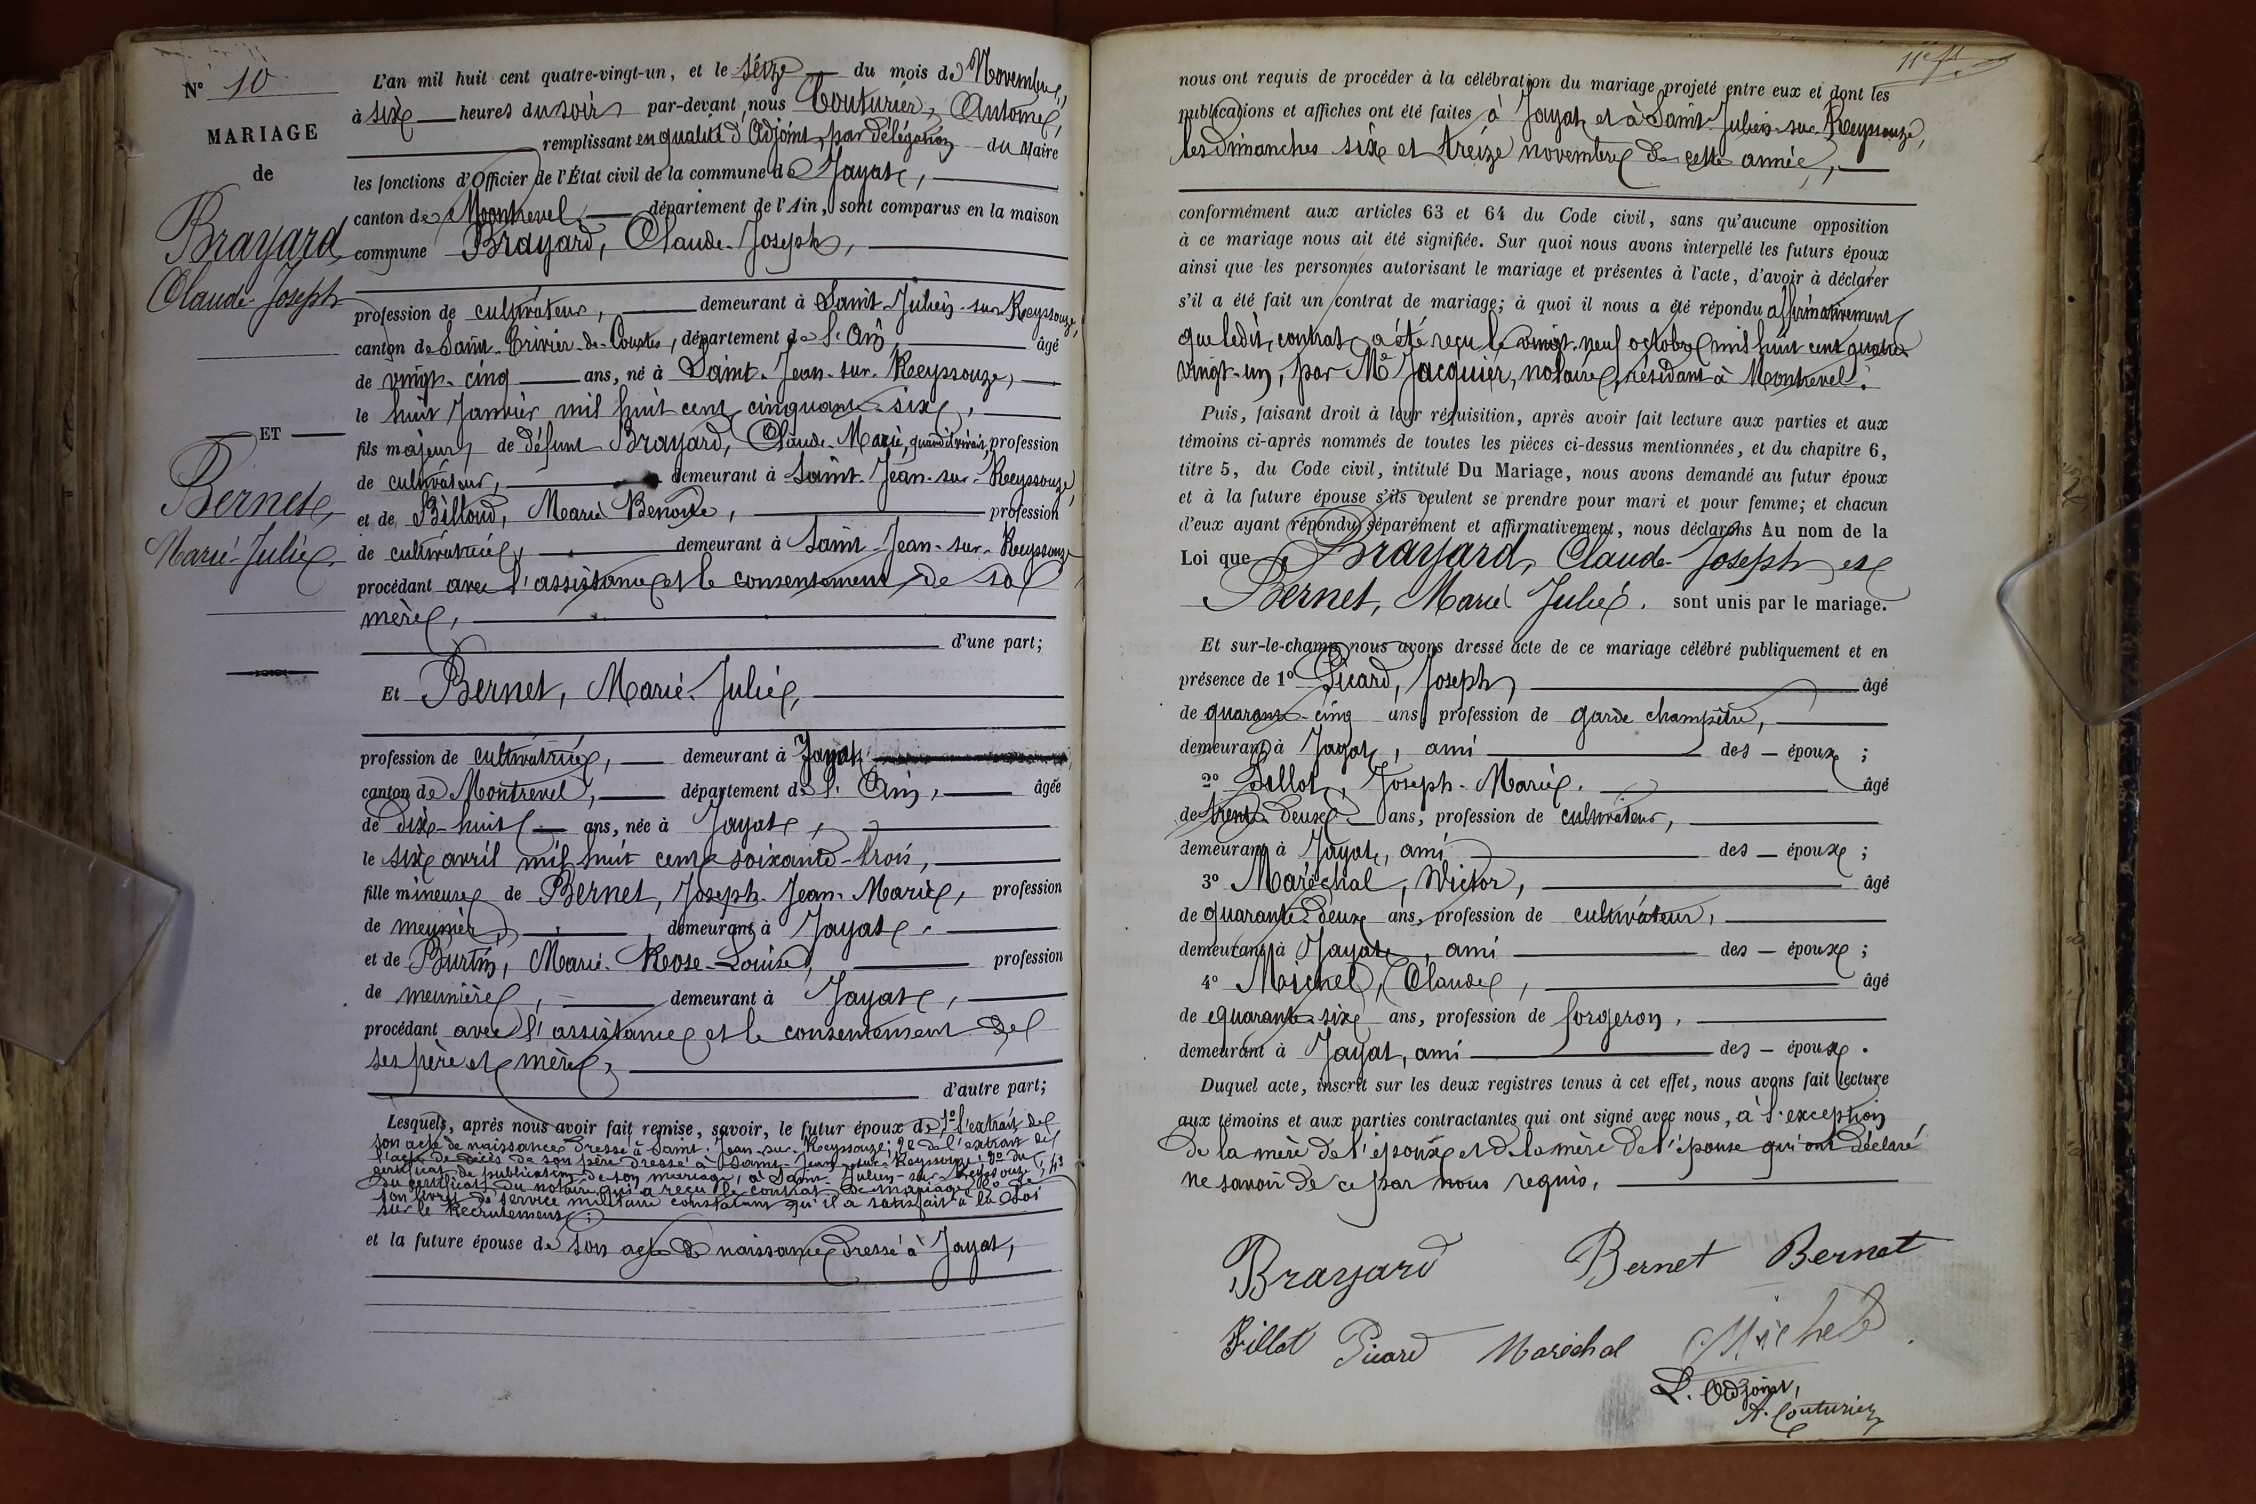 N° 10
MARIAGE
de
Brayard
Claude-Joseph
ET
Bernet,
Marie-Julie.
L'an mil huit cent quatre-vingt-un, et le seize du mois de Novembre,
à six heures du soir par-devant nous Couturier, Antoine,
remplissant en qualité d'Adjoint, par délégation du Maire
les fonctions d'Officier de l'État civil de la commune de Jayat,
canton de Montrevel, département de l'Ain, sont comparus en la maison
commune Brayard, Claude-Joseph,
profession de cultivateur, demeurant à Saint-Julien-sur-Reyssouze,
canton de Saint-Trivier-de-Courtes, département de l'Ain, âgé
de vingt-cinq ans, né à Saint-Jean-sur-Reyssouze,
le huit Janvier mil huit cent cinquante-six,
fils majeur de défunt Brayard, Claude-Marie, quand il vivait, profession
de cultivateur, demeurant à Saint-Jean-sur-Reyssouze,
et de Billoud, Marie Benoite, profession
de cultivatrice, demeurant à Saint-Jean-sur-Reyssouze
procédant avec l'assistance et le consentement de sa
mère,
d'une part;
Et Bernet, Marie-Julie,
profession de cultivatrice, demeurant à Jayat
canton de Montrevel, département de l'Ain, âgée
de dix-huit ans, née à Jayat,
le six avril mil huit cent soixante-trois,
fille mineure de Bernet, Joseph-Jean-Marie, profession
de meunier, demeurant à Jayat,
et de Burtin, Marie-Rose-Louise, profession
de meunière, demeurant à Jayat,
procédant avec l'assistance et le consentement de
ses père et mère,
d'autre part;
Lesquels, après nous avoir fait remise, savoir, le futur époux de 1° l'extrait de
son acte de naissance dressé à Saint-Jean-sur-Reyssouze; 2° de l'extrait de
l'acte de décès de son père dressé à Saint-Jean-sur-Reyssouze; 3° du
certificat de publication de son mariage, à Saint-Julien-sur-Reyssouze; 4°
du certificat du notaire qui a reçu le contrat de mariage; 5° de
son livret de service militaire constatant qu'il a satisfait à la Loi
sur le Recrutement;
et la future épouse de son acte de naissance dressé à Jayat,
11e ft
nous ont requis de procéder à la célébration du mariage projeté entre eux et dont les
publications et affiches ont été faites à Jayat et à Saint-Julien-sur-Reyssouze,
les dimanches six et treize novembre de cette année,
conformément aux articles 63 et 64 du Code civil, sans qu'aucune opposition
à ce mariage nous ait été signifiée. Sur quoi nous avons interpellé les futurs époux
ainsi que les personnes autorisant le mariage et présentes à l'acte, d'avoir à déclarer
s'il a été fait un contrat de mariage; à quoi il nous a été répondu affirmativement
que ledit contrat a été reçu le vingt-neuf octobre mil huit cent quatre
vingt-un, par Me Jacquier, notaire, résidant à Montrevel.
Puis, faisant droit à leur réquisition, après avoir fait lecture aux parties et aux
témoins ci-après nommés de toutes les pièces ci-dessus mentionnées, et du chapitre 6,
titre 5, du Code civil, intitulé Du Mariage, nous avons demandé au futur époux
et à la future épouse s'ils veulent se prendre pour mari et pour femme; et chacun
d'eux ayant répondu séparément et affirmativement, nous déclarons Au nom de la
Loi que Brayard, Claude-Joseph et
Bernet, Marie Julie. sont unis par le mariage.
Et sur-le-champ nous avons dressé acte de ce mariage célébré publiquement et en
présence de 1° Picard, Joseph, âgé
de quarante-cinq ans, profession de garde champêtre,
demeurant à Jayat, ami des époux;
2° Fillot, Joseph-Marie. âgé
de trente-deux ans, profession de cultivateur,
demeurant à Jayat, ami des époux;
3° Maréchal, Victor, âgé
de quarante-deux ans, profession de cultivateur,
demeurant à Jayat, ami des époux;
4° Michel, Claude, âgé
de quarante-six ans, profession de forgeron,
demeurant à Jayat, ami des époux.
Duquel acte, inscrit sur les deux registres tenus à cet effet, nous avons fait lecture
aux témoins et aux parties contractantes qui ont signé avec nous, à l'exception
de la mère de l'époux et de la mère de l'épouse qui ont déclaré
ne savoir de ce par nous requis.
Brayard Bernet Bernet
Fillot Picard Maréchal Michel
L. Adjoint,
A. Couturier